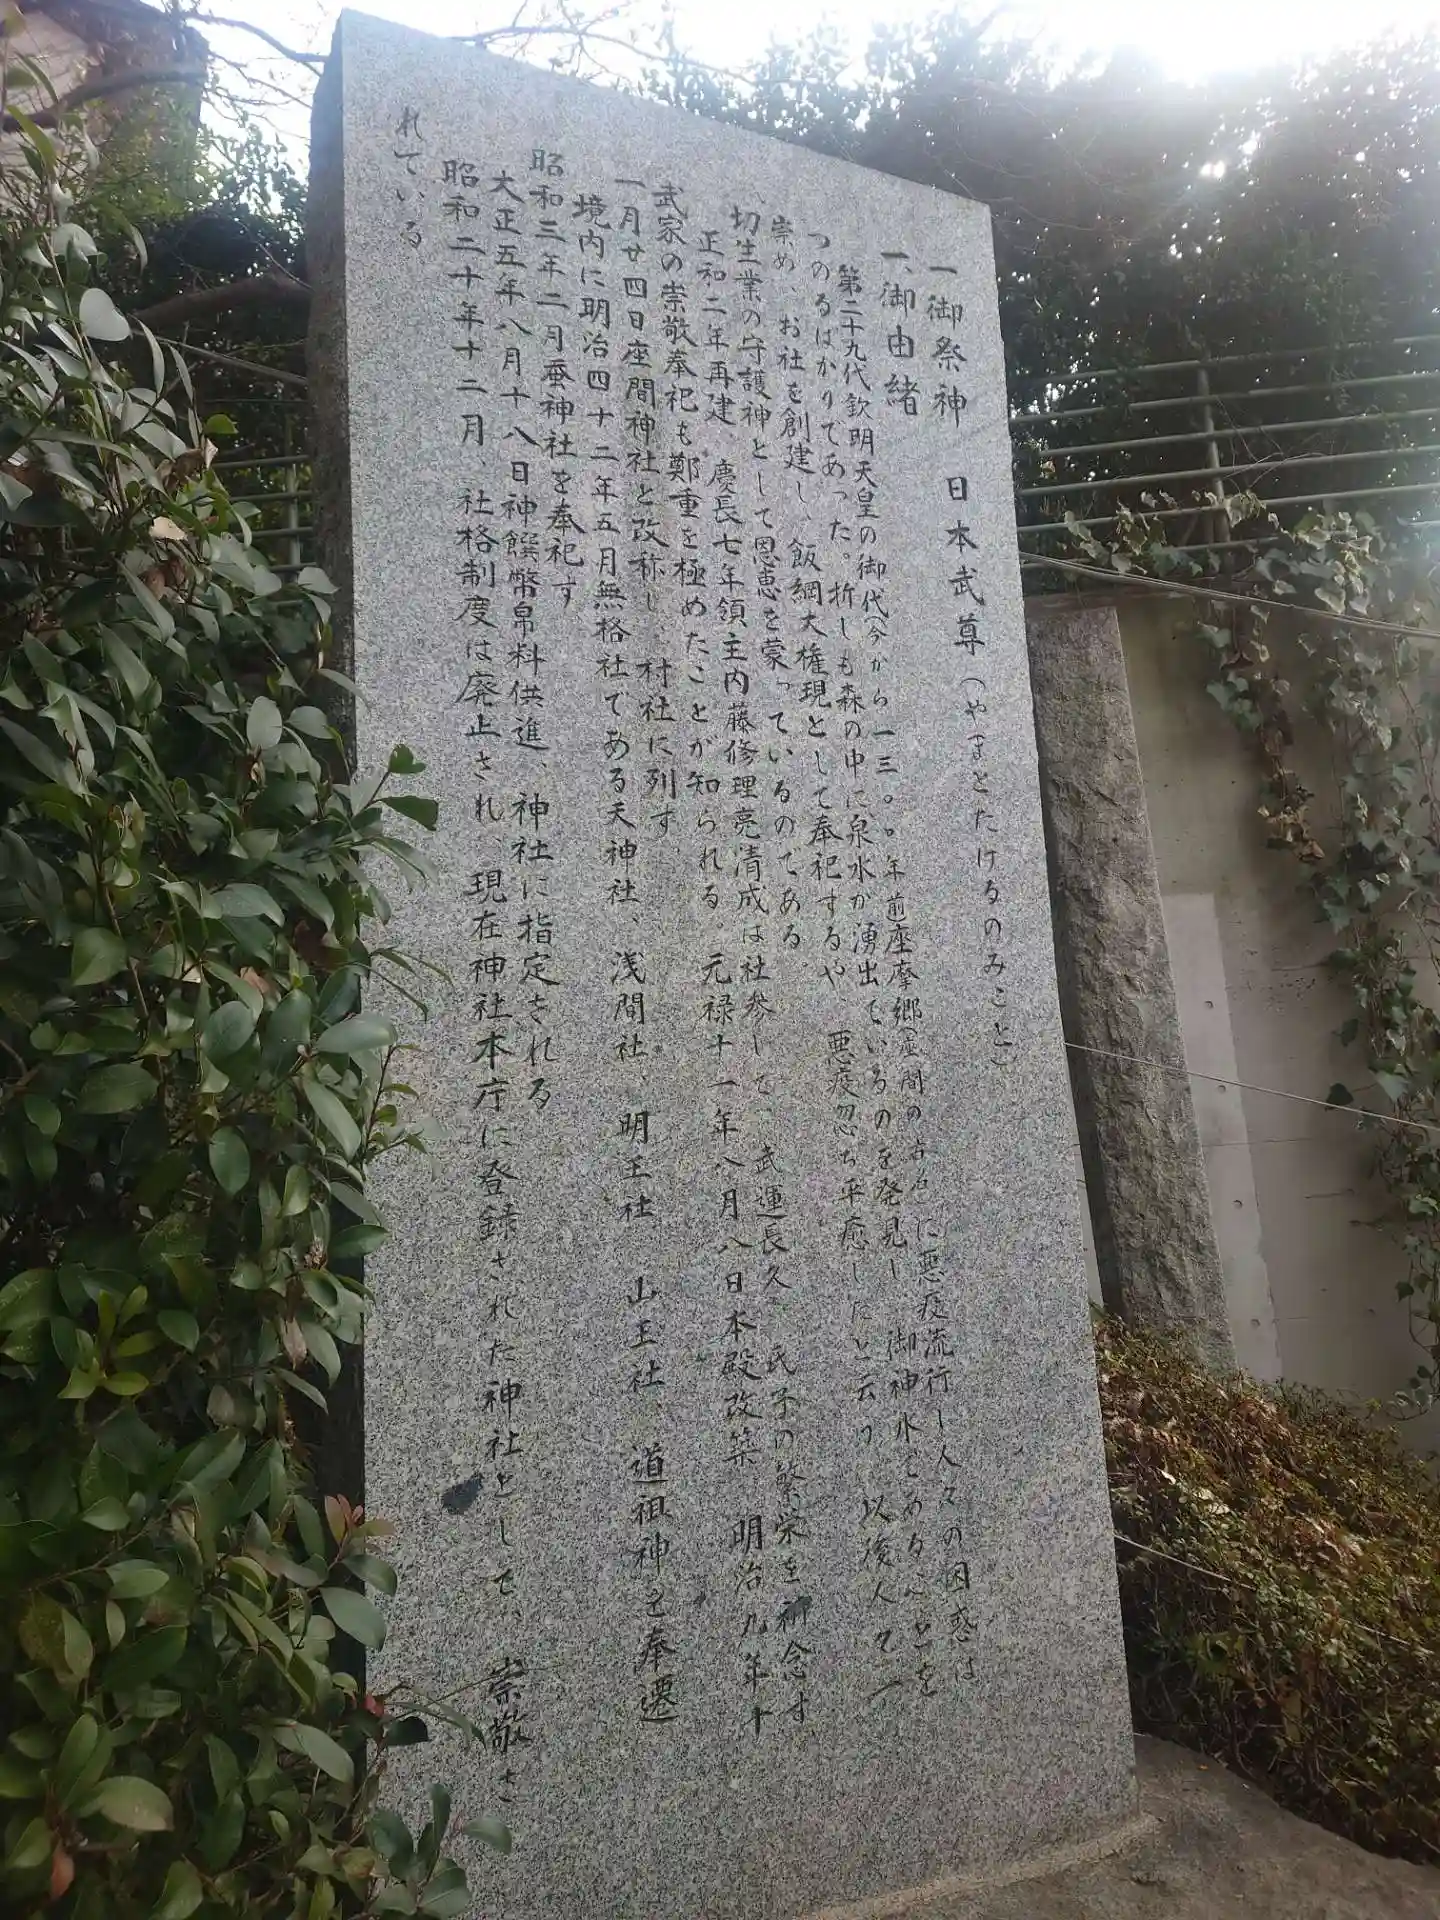 一御祭神　日本武尊（やまとたけるのみこと）
一、御由緒
第二十九代欽明天皇の御代（今から一三〇〇年前座摩郷（座間の古口）に悪疫流行し人々の困惑は
つのるばかりであった。折しも森の中に泉水が湧出ているのを発見し御神水であることを
崇め、お社を創建し、飯綱大権現として奉祀するや、悪疫忽ち平癒したと云う　以後人々一
切生業の守護神として恩恵を蒙っているのである
正和二年再建、慶長七年領主内藤修理亮清成は社参して、武運長久　氏子の繁栄を祈念す
武家の崇敬奉祀も鄭重を極めたことが知られる。元禄十一年八月八日本殿改築　明治九年十
一月廿四日座間神社と改称し、村社に列す
境内に明治四十二年五月無格社である天神社、浅間社、明王社　山王社、道祖神を奉遷
昭和三年二月蚕神社を奉祀す
大正五年八月十八日神饌幣帛料供進、神社に指定される
昭和二十年十二月、社格制度は廃止され、現在神社本庁に登録された神社として、崇敬さ
れている